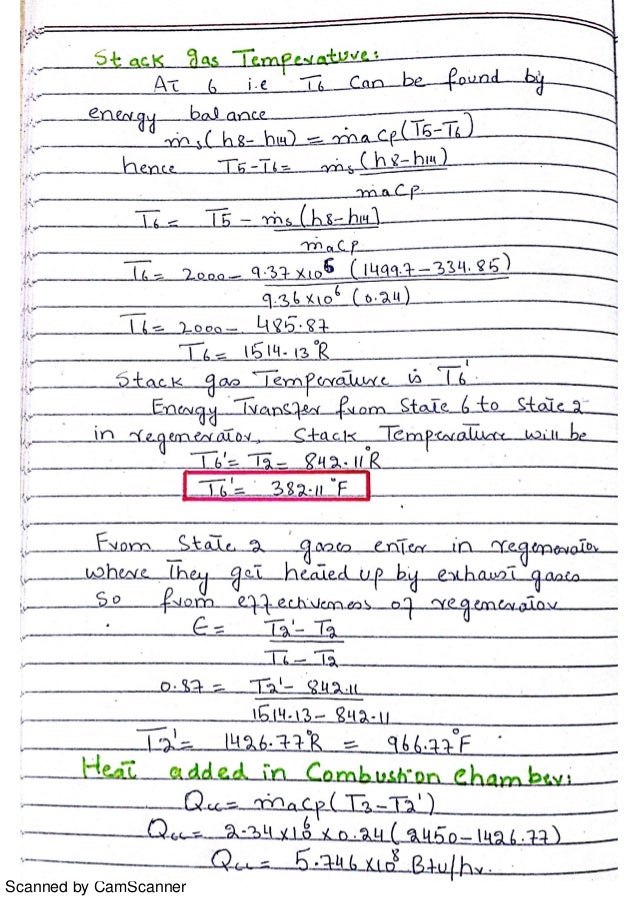 Stack gas Temperature:
At 6 i.e T6 Can be found by
energy balance
ṁs(h8-h14) = ṁacp(T5-T6)
hence T5-T6 = ṁs(h8-h14)
ṁacp
T6 = T5 - ṁs(h8-h14)
ṁacp
T6 = 2000 - 9.37×10⁵ (1499.7-334.85)
9.36×10⁶ (0.24)
T6 = 2000 - 485.87
T6 = 1514.13°R
Stack gas Temperature is T6'
Energy Transfer from State 6 to State 2
in regenerator, Stack Temperature will be
T6' = T2 = 842.11°R
T6' = 382.11°F
From State 2 gases enter in regenerator
where They get heated up by exhaust gases
So from effectiveness of regenerator
Є = T2' - T2
T6 - T2
0.87 = T2' - 842.11
1514.13 - 842.11
T2' = 1426.77°R = 966.77°F
Heat added in Combustion Chamber:
Qcc = ṁacp(T3-T2')
Qcc = 2.34×10⁶ × 0.24(2450-1426.77)
Qcc = 5.746×10⁸ Btu/hr.
Scanned by CamScanner